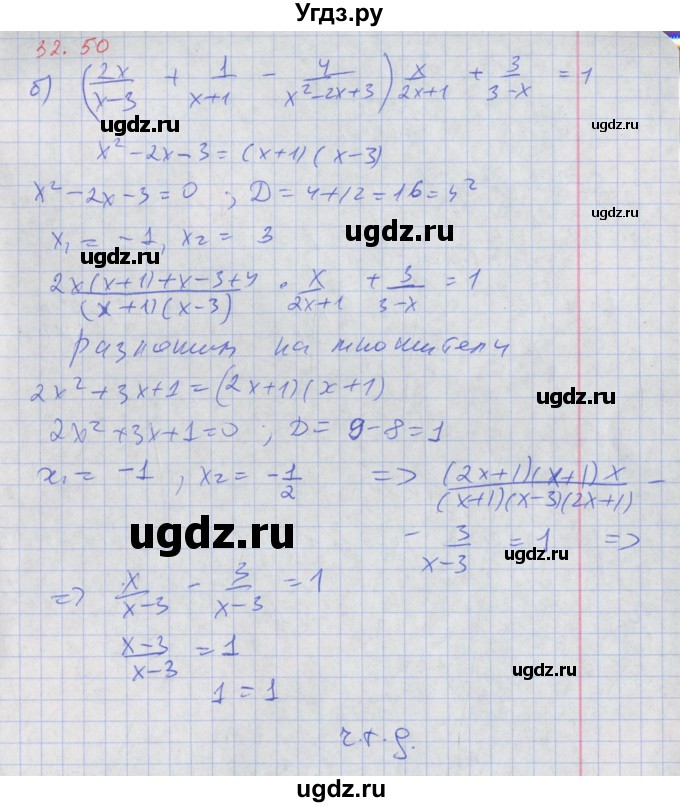 Угдз.ру
32.50
б) (2x/(x-3) + 1/(x+1) - 4/(x²-2x+3)) x/(2x+1) + 3/(3-x) = 1
ugdz.ru ugdz.ru
x²-2x-3 = (x+1)(x-3)
x²-2x-3=0 ; D=4+12=16=4²
ugdz.ru
x₁ = -1, x₂ = 3
ugdz.ru
(2x(x+1)+x-3+4)/((x+1)(x-3)) · x/(2x+1) + 3/(3-x) = 1
Разложим на множители
ugdz.ru
2x²+3x+1=(2x+1)(x+1)
2x²+3x+1=0 ; D= 9-8=1
x₁ = -1 , x₂ = -1/2 => ((2x+1)(x+1)x)/((x+1)(x-3)(2x+1)) -
ugdz.ru ugdz.ru
- 3/(x-3) = 1 =>
ugdz.ru
=> x/(x-3) - 3/(x-3) = 1
ugdz.ru
(x-3)/(x-3) = 1
ugdz.ru
1 = 1
ugdz.ru
ч.т.д.
ugdz.ru